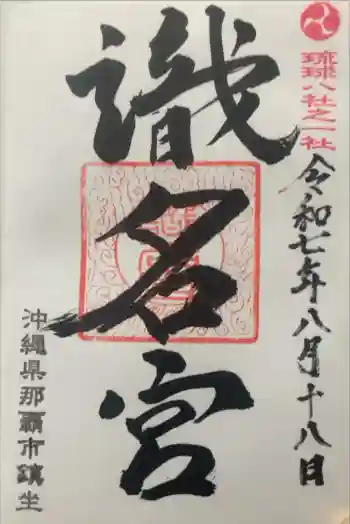 琉球八社之一社
令和七年八月十八日
識名宮
沖縄県那覇市鎮坐